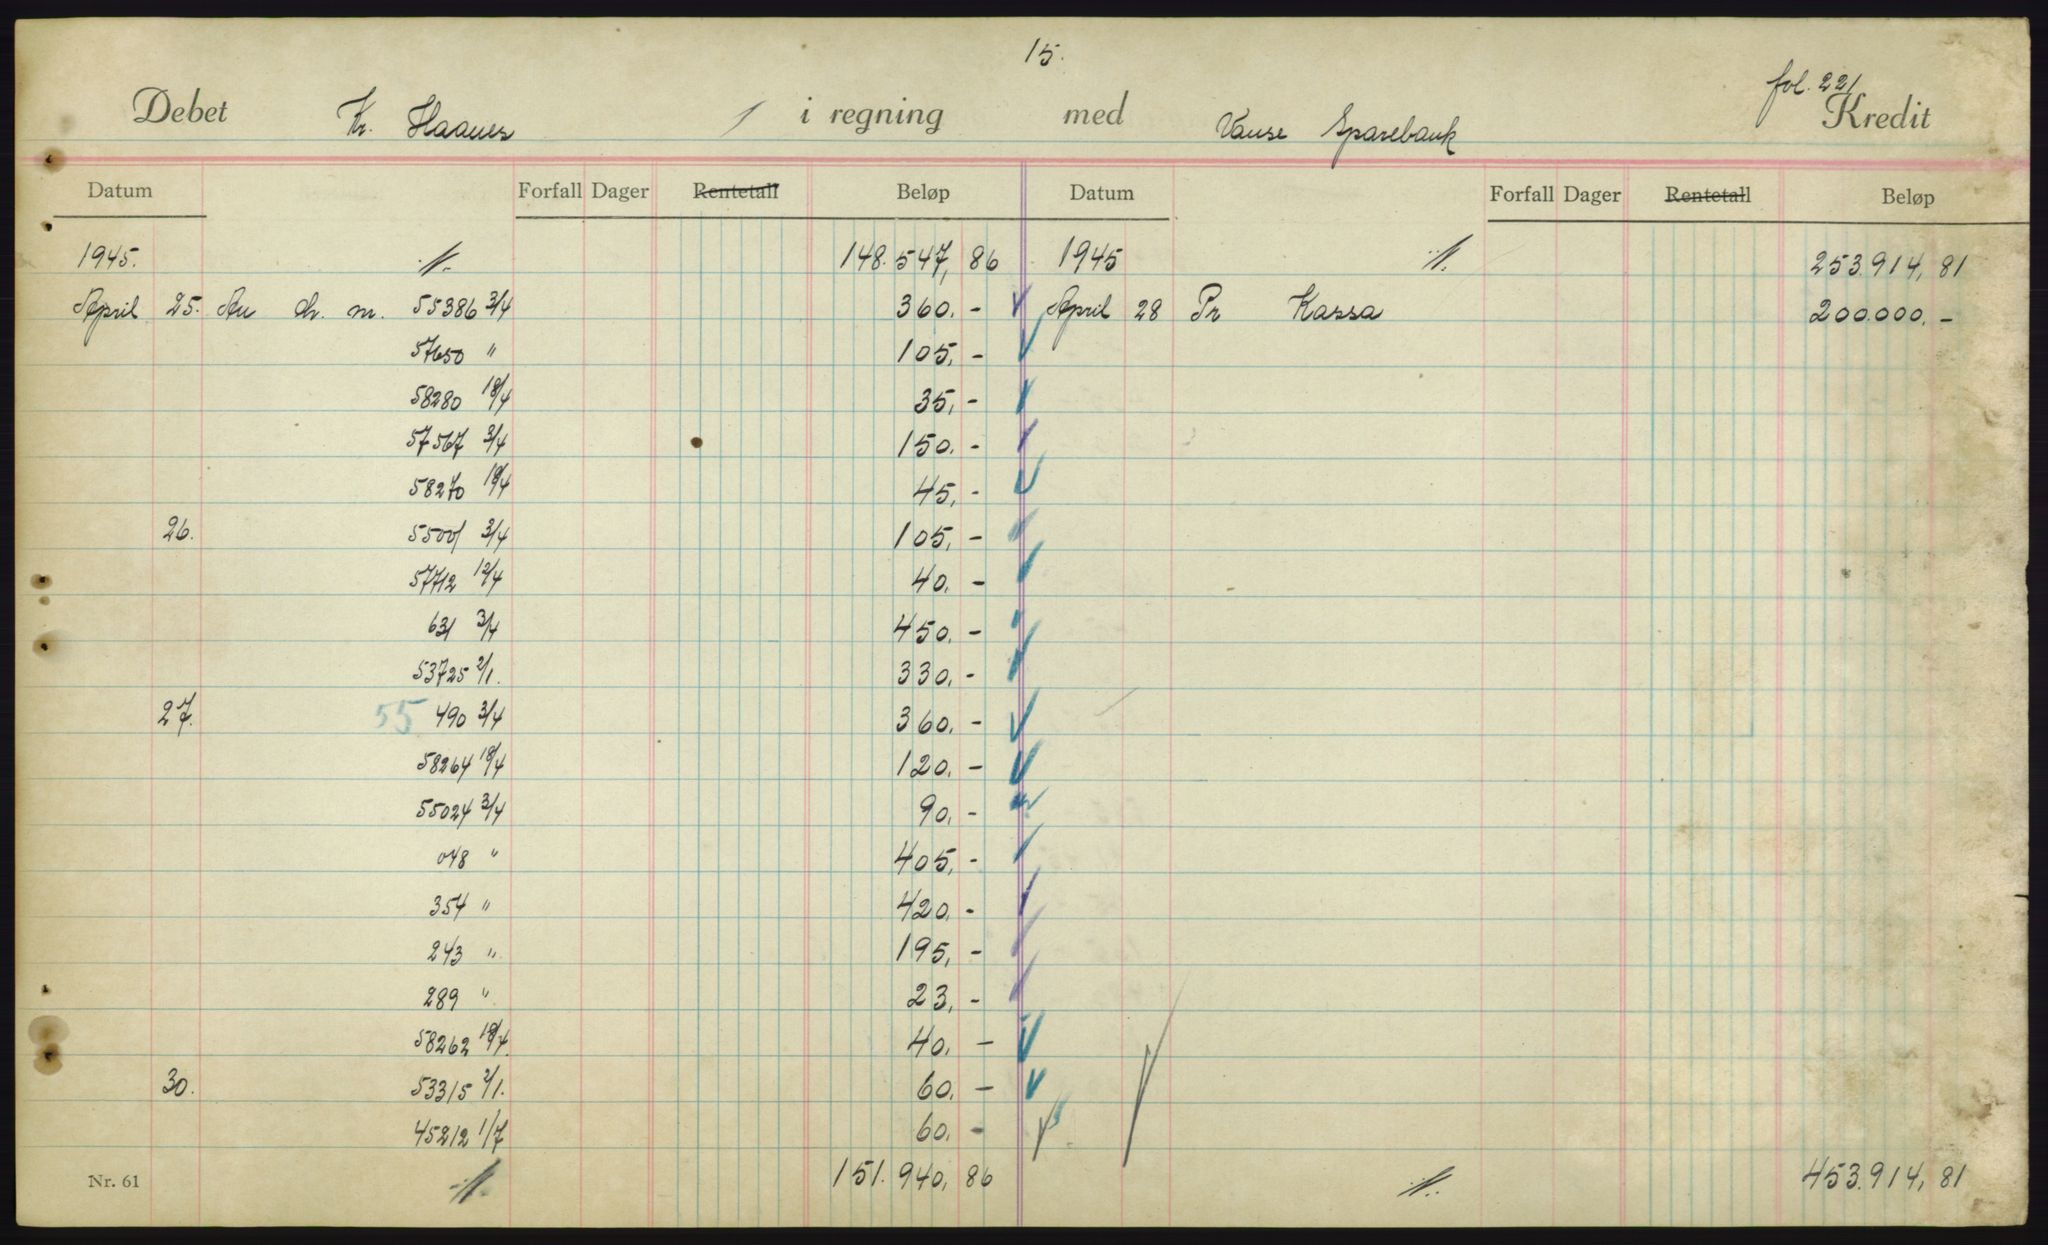 15.
fol. 221
Debet Kr. Haanes i regning med Vanse Sparebank Kredit
Datum Forfall Dager Rentetall Beløp Datum Forfall Dager Rentetall Beløp
1945. 148.547,86 1945 253.914,81
April 25. An ch. nr. 55386 3/4 360.- April 28 Pr Kassa 200.000.-
57650 " 105,-
58280 18/4 35,-
57567 3/4 150.-
58270 18/4 45,-
26. 55001 3/4 105,-
57712 12/4 40.-
631 3/4 450.-
53725 2/1. 330.-
27. 55 490 3/4 360.-
58264 18/4 120.-
55024 3/4 90.-
048 " 405,-
354 " 420.-
243 " 195,-
289 " 23,-
58262 18/4. 40.-
30. 53315 2/1. 60.-
45212 1/7 60.-
Nr. 61 151.940,86 453.914,81